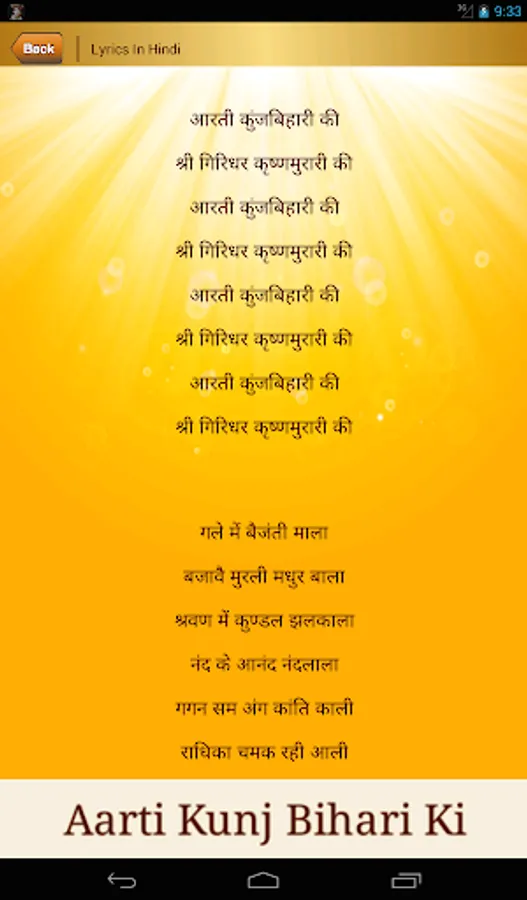 3G
9:33
Back
Lyrics In Hindi
आरती कुंजबिहारी की
श्री गिरिधर कृष्णमुरारी की
आरती कुंजबिहारी की
श्री गिरिधर कृष्णमुरारी की
आरती कुंजबिहारी की
श्री गिरिधर कृष्णमुरारी की
आरती कुंजबिहारी की
श्री गिरिधर कृष्णमुरारी की
गले में बैजंती माला
बजावै मुरली मधुर बाला
श्रवण में कुण्डल झलकाला
नंद के आनंद नंदलाला
गगन सम अंग कांति काली
राधिका चमक रही आली
Aarti Kunj Bihari Ki